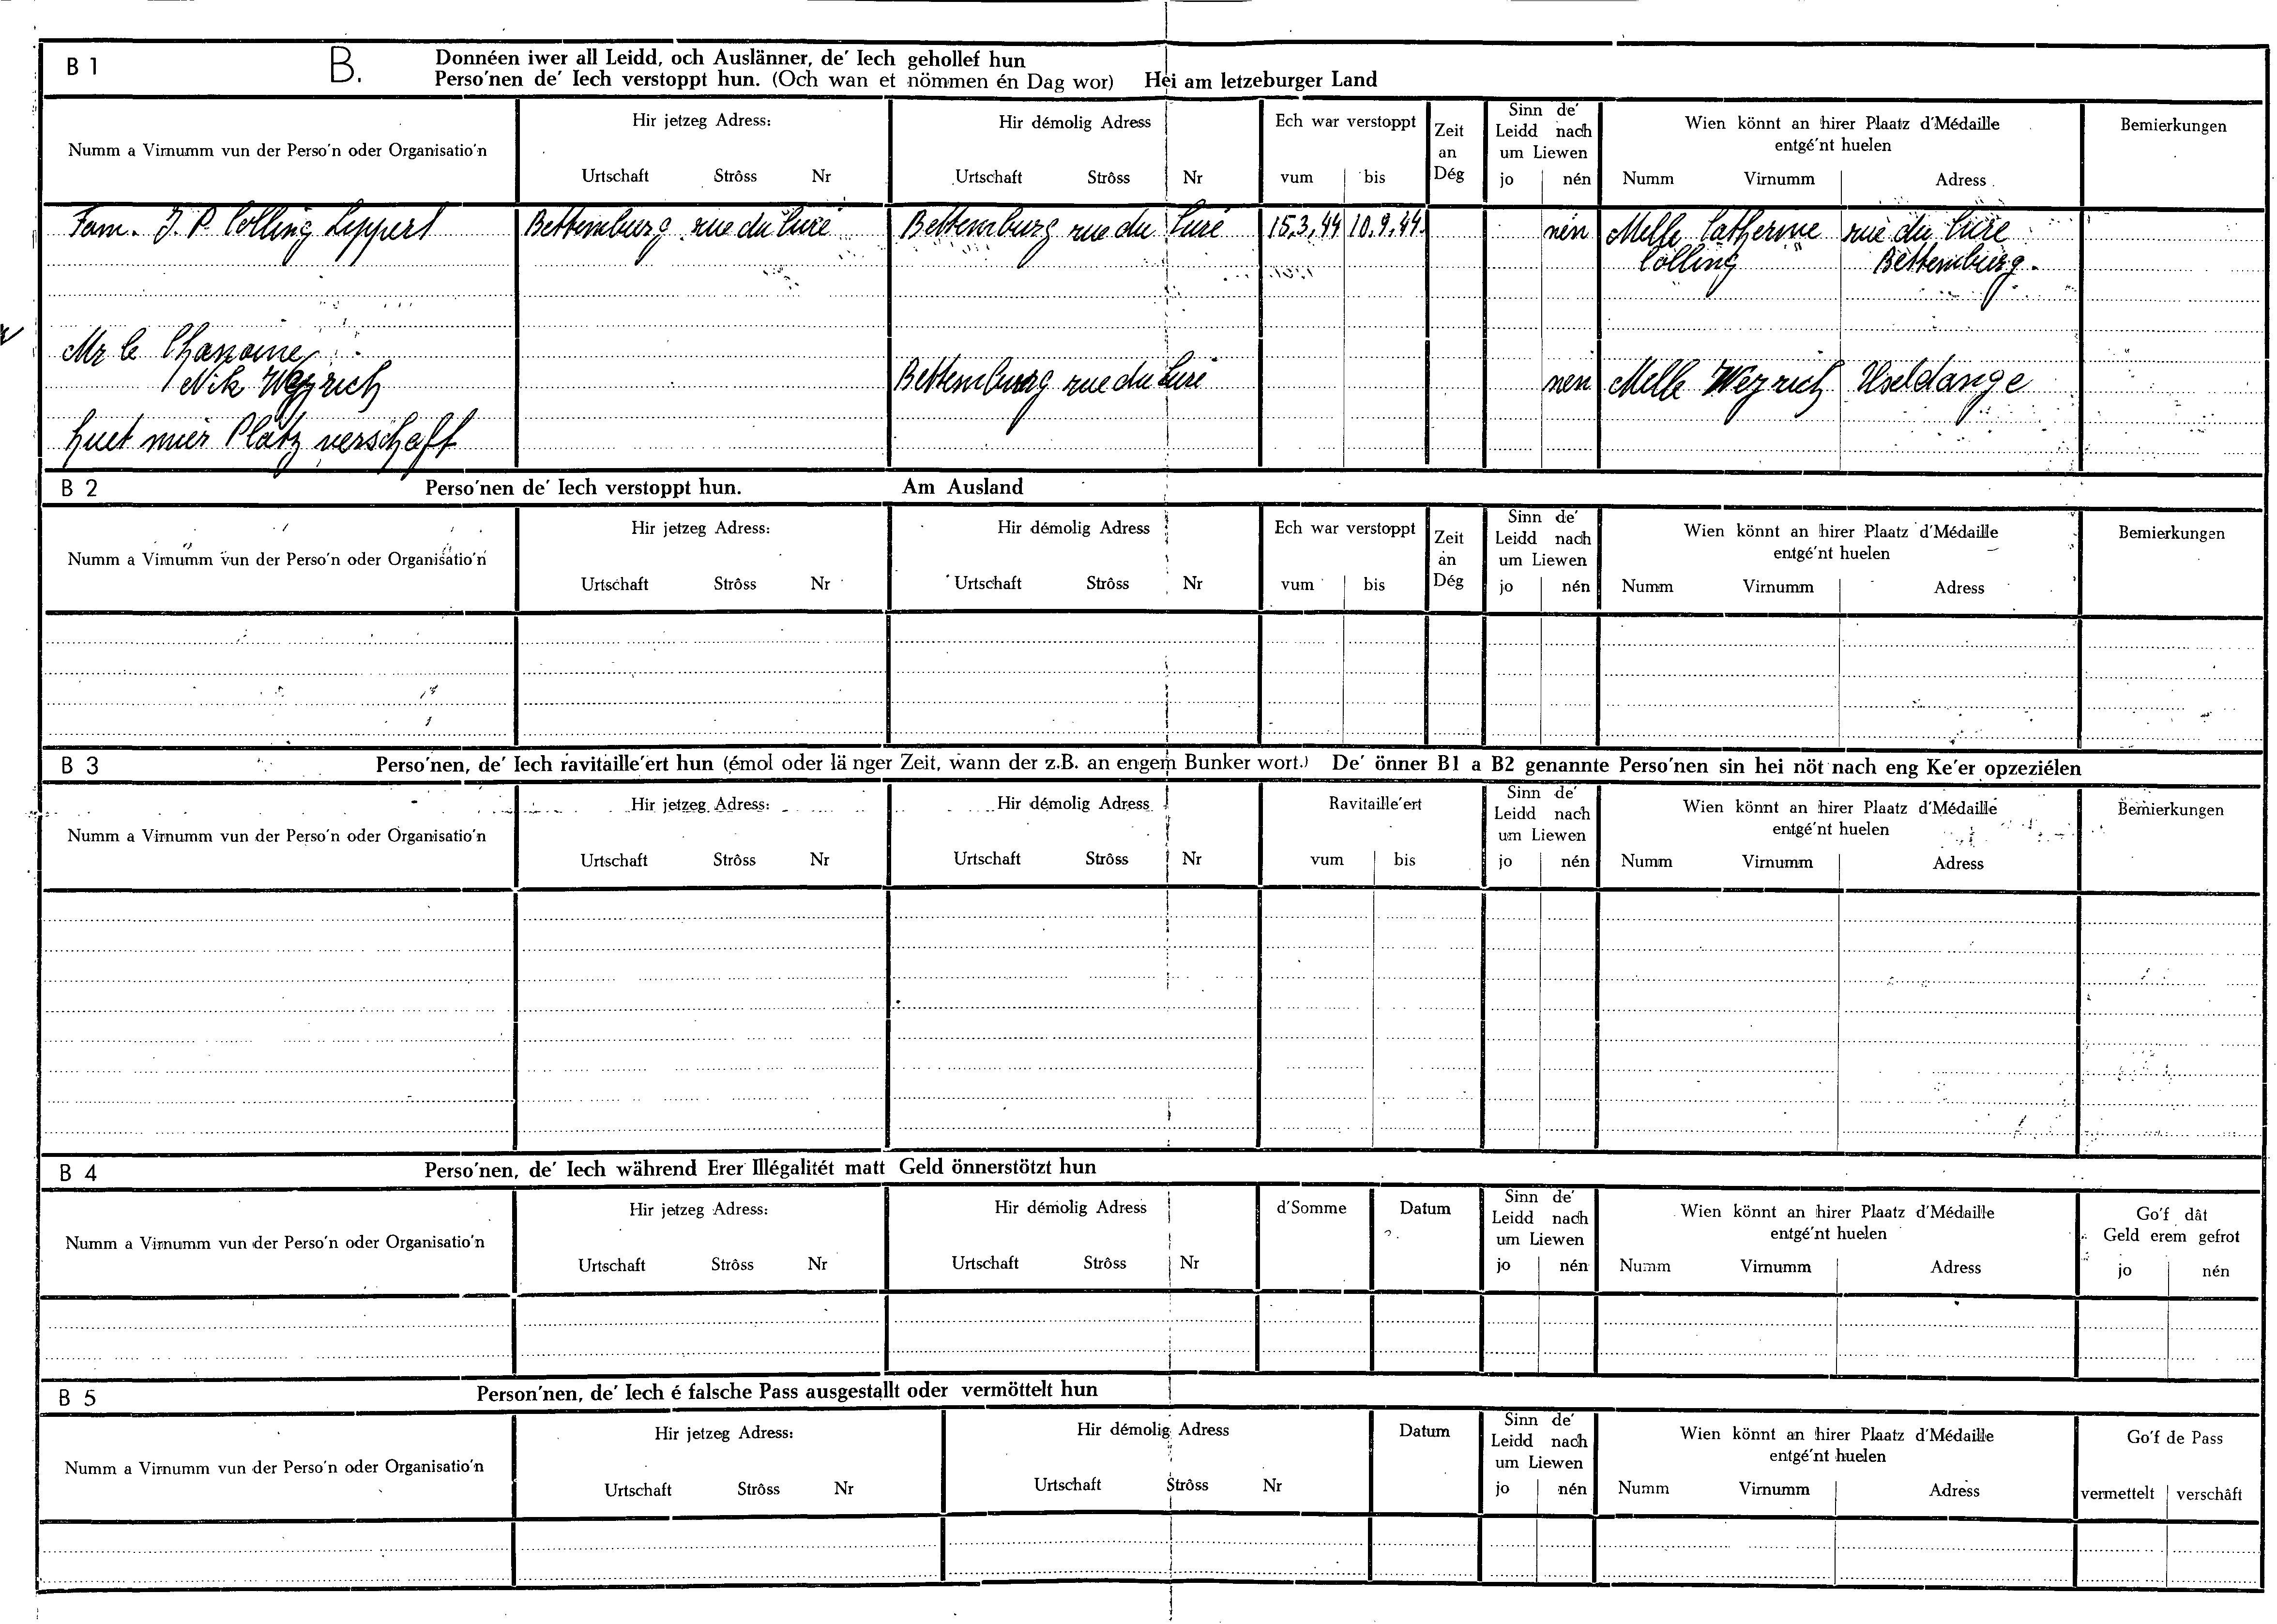 B 1 B. Donnéen iwer all Leidd, och Auslänner, de' Iech gehollef hun
Perso'nen de' Iech verstoppt hun. (Och wan et nömmen én Dag wor) Hei am letzeburger Land
Numm a Virnumm vun der Perso'n oder Organisatio'n
Hir jetzeg Adress:
Urtschaft Strôss Nr
Hir démolig Adress
Urtschaft Strôss Nr
Ech war verstoppt
vum bis
Zeit
an
Dég
Sinn de'
Leidd nach
um Liewen
jo nén
Wien könnt an hirer Plaatz d'Médaille
entgé'nt huelen
Numm Virnumm Adress
Bemierkungen
Fam. J. P. Colling Leppert Bettemburg rue du Curé Bettemburg rue du Curé 15.3.44 10.9.44. nén Melle Catherine rue du Curé
Colling Bettemburg.
Mr le Chanoine
Nik Weyrich Bettemburg rue du Curé nen Melle Weyrich Useldange
huet mier Platz verschaft
B 2 Perso'nen de' Iech verstoppt hun. Am Ausland
Numm a Virnumm vun der Perso'n oder Organisatio'n
Hir jetzeg Adress:
Urtschaft Strôss Nr
Hir démolig Adress
Urtschaft Strôss Nr
Ech war verstoppt
vum bis
Zeit
an
Dég
Sinn de'
Leidd nach
um Liewen
jo nén
Wien könnt an hirer Plaatz d'Médaille
entgé'nt huelen
Numm Virnumm Adress
Bemierkungen
B 3 Perso'nen, de' Iech ravitaille'ert hun (émol oder länger Zeit, wann der z.B. an engem Bunker wort.) De' önner B1 a B2 genannte Perso'nen sin hei nöt nach eng Ke'er opzeziélen
Numm a Virnumm vun der Perso'n oder Organisatio'n
Hir jetzeg Adress:
Urtschaft Strôss Nr
Hir démolig Adress
Urtschaft Strôss Nr
Ravitaille'ert
vum bis
Sinn de'
Leidd nach
um Liewen
jo nén
Wien könnt an hirer Plaatz d'Médaille
entgé'nt huelen
Numm Virnumm Adress
Bemierkungen
B 4 Perso'nen, de' Iech während Erer Illégalitét matt Geld önnerstötzt hun
Numm a Virnumm vun der Perso'n oder Organisatio'n
Hir jetzeg Adress:
Urtschaft Strôss Nr
Hir démolig Adress
Urtschaft Strôss Nr
d'Somme
Datum
Sinn de'
Leidd nach
um Liewen
jo nén
Wien könnt an hirer Plaatz d'Médaille
entgé'nt huelen
Numm Virnumm Adress
Go'f dât
Geld erem gefrot
jo nén
B 5 Person'nen, de' Iech é falsche Pass ausgestallt oder vermöttelt hun
Numm a Virnumm vun der Perso'n oder Organisatio'n
Hir jetzeg Adress:
Urtschaft Strôss Nr
Hir démolig Adress
Urtschaft Strôss Nr
Datum
Sinn de'
Leidd nach
um Liewen
jo nén
Wien könnt an hirer Plaatz d'Médaille
entgé'nt huelen
Numm Virnumm Adress
Go'f de Pass
vermettelt verschâft